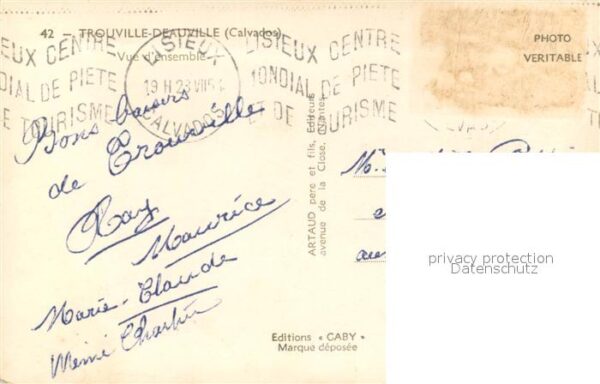 42 - TROUVILLE-DEAUVILLE (Calvados)
Vue d'ensemble
LISIEUX
19 H 23 VII
CALVADOS
LISIEUX CENTRE
MONDIAL DE PIETE
ET DE TOURISME
PHOTO
VERITABLE
IEUX CENTRE
DIAL DE PIETE
E TOURISME
Bons baisers
de Trouville
Maurice
Marie-Claude
Mémé
ARTAUD père et fils, Editeurs
avenue de la Close, Nantes
Editions « GABY »
Marque déposée
privacy protection
Datenschutz